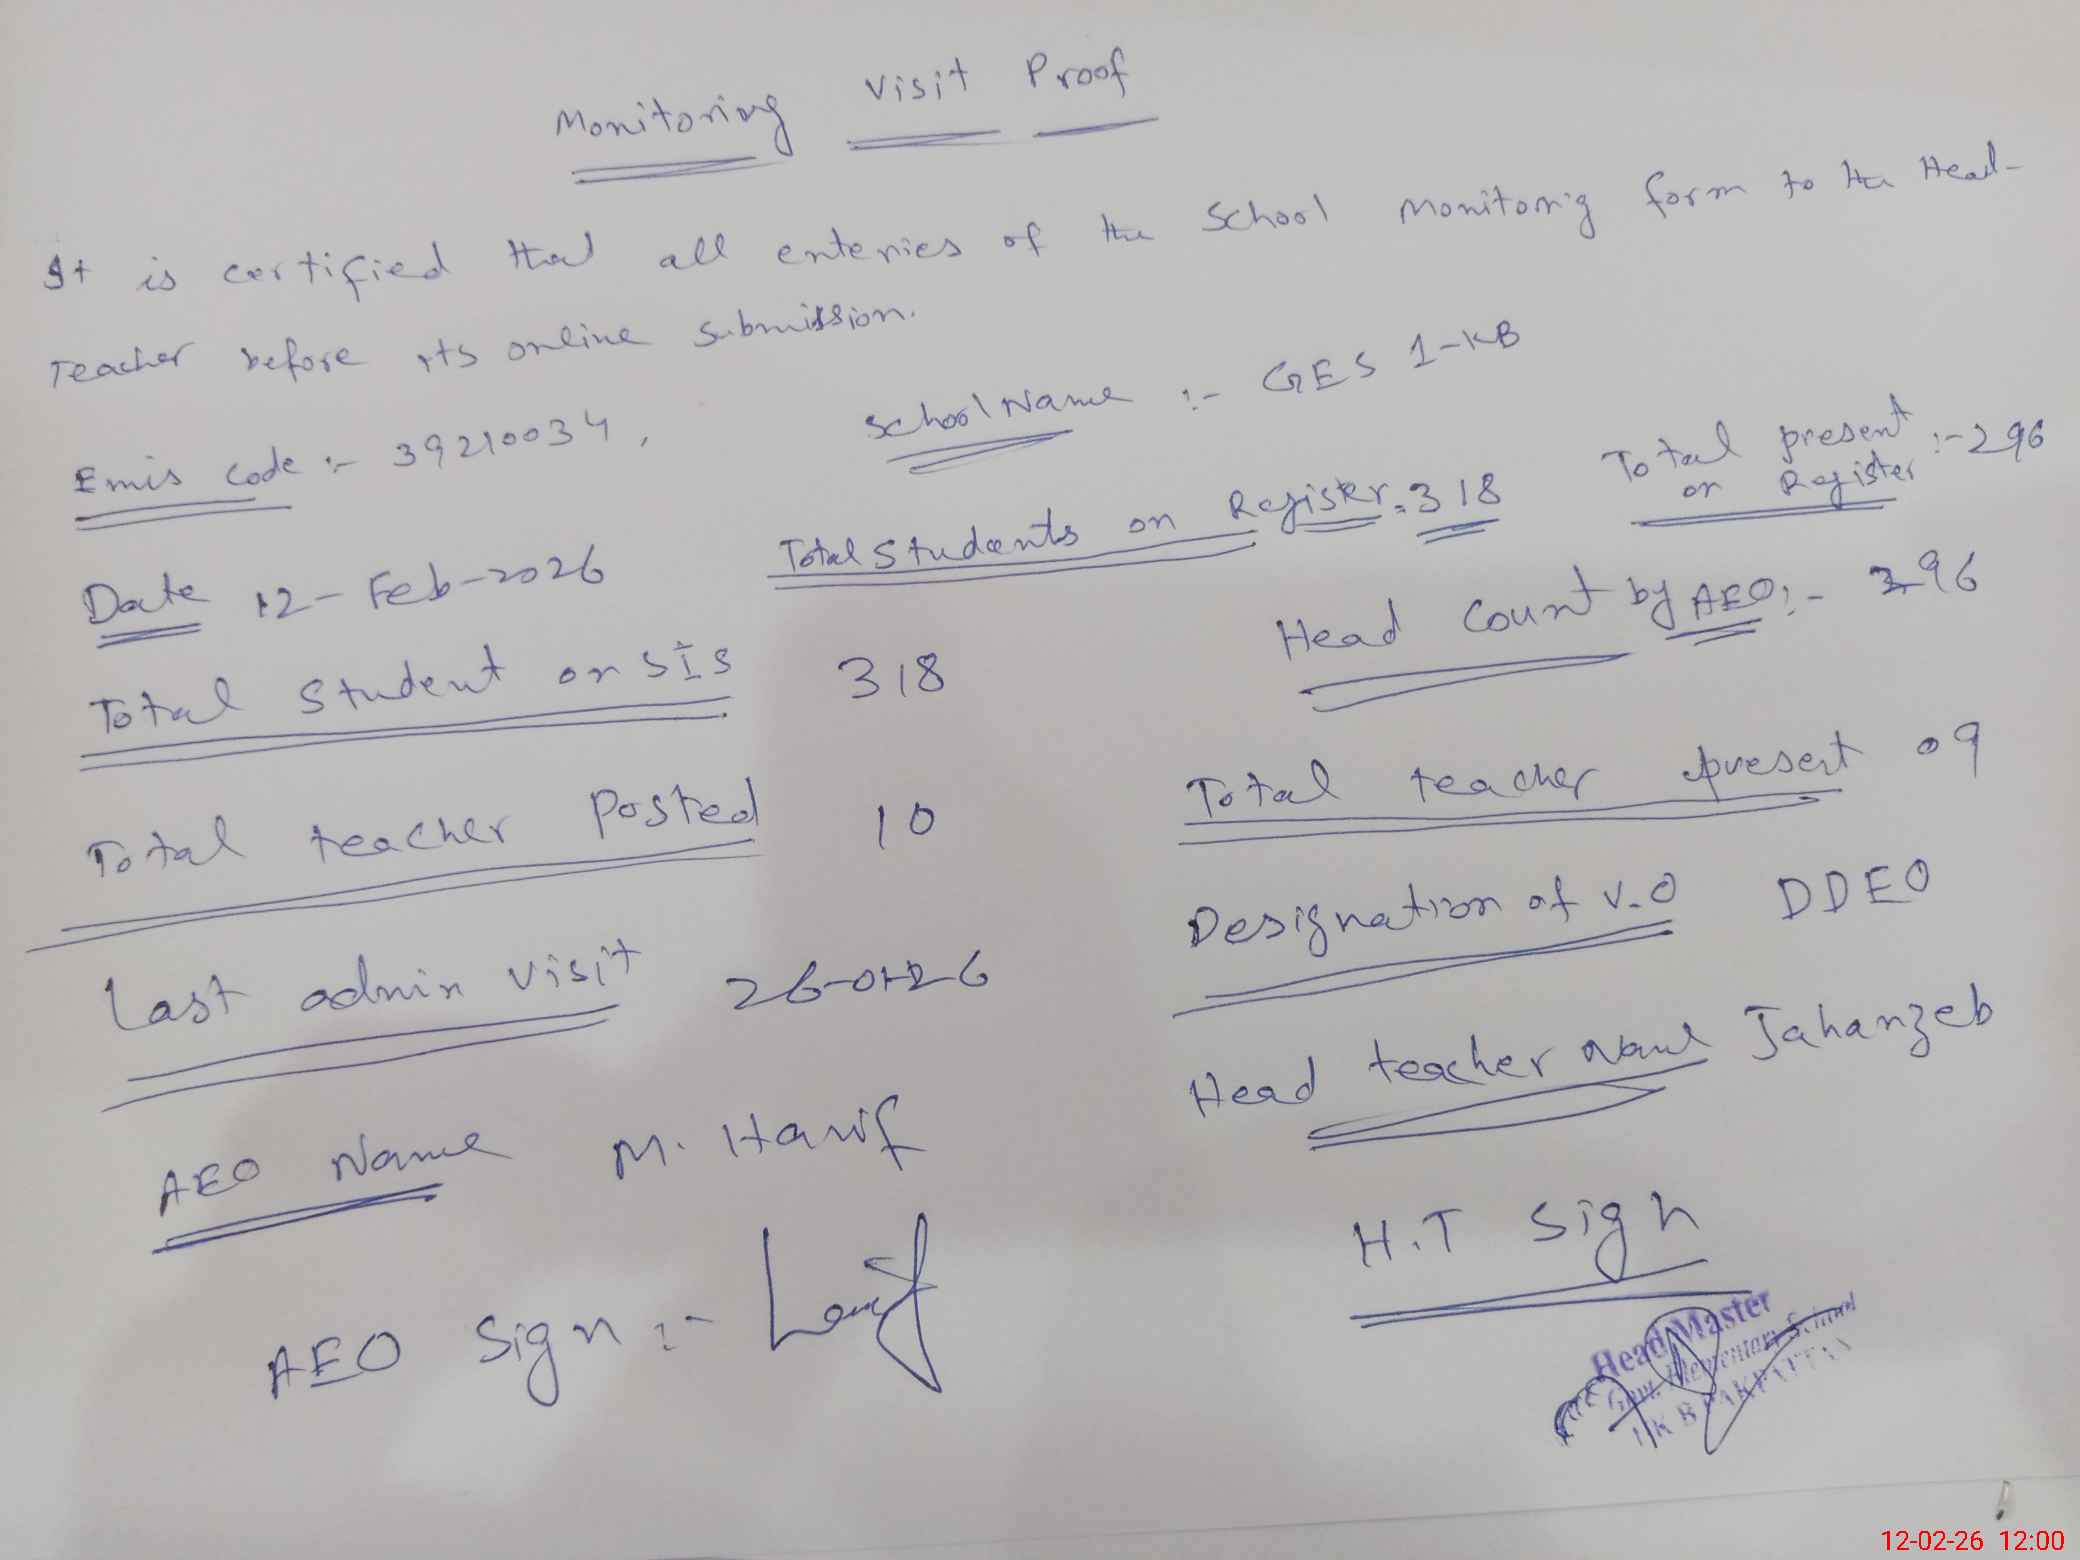 Monitoring Visit Proof
It is certified that all enteries of the School Monitoring form to the Head-
Teacher before its online submission.
Emis Code :- 39210034, School Name :- GES 1-KB
Date 12-Feb-2026 Total Students on Register = 318 Total present on Register :- 296
Total Student on SIS 318 Head Count by AEO :- 296
Total teacher Posted 10 Total teacher present 09
Last admin visit 26-01-26 Designation of V.O DDEO
AEO Name M. Hanif Head teacher Name Jahanzeb
AEO Sign :- H.T Sign
Head Master
Govt. Elementary School
1 K B PAKPATTAN
12-02-26 12:00